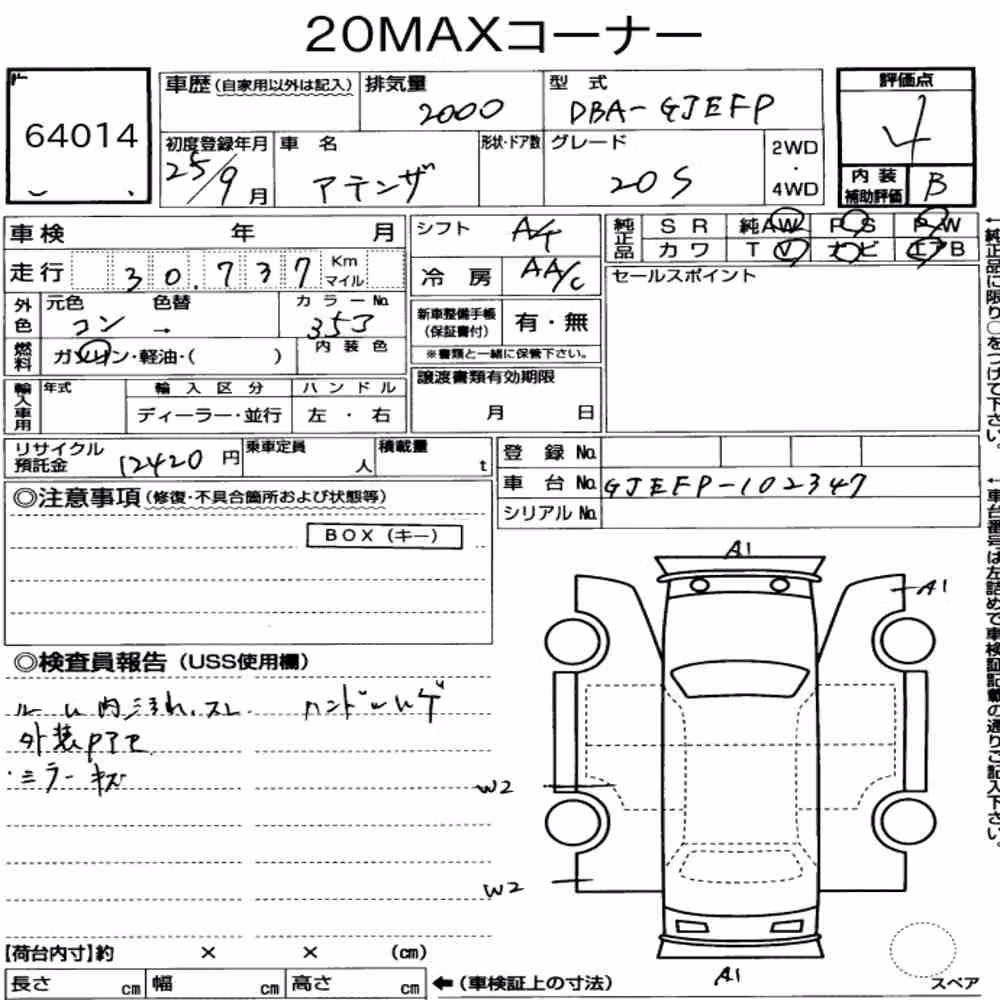 20MAXコーナー
64014
車歴(自家用以外は記入) 排気量 型式 評価点
2000 DBA-GJEFP 4
初度登録年月 車名 形状・ドア数 グレード 2WD・4WD
25/9月 アテンザ 20S
内装補助評価 B
車検 年 月
シフト A/T
純正品 SR 純AW PS PW
カワ TV ナビ エアB
走行 30.737 Km マイル
冷房 AA/C
セールスポイント
外色 元色 色替 カラーNo.
コン → 353
新車整備手帳(保証書付) 有・無
※書類と一緒に保管下さい。
燃料 ガソリン・軽油・( ) 内装色
譲渡書類有効期限
月 日
輸入車用 年式 輸入区分 ハンドル
ディーラー・並行 左・右
リサイクル預託金 12420円 乗車定員 人 積載量 t
登録No.
車台No. GJEFP-102347
シリアルNo.
◎注意事項(修復・不具合箇所および状態等)
BOX(キー)
◎検査員報告(USS使用欄)
ルーム内汚れ.スレ ハンドル
外装PアE
・ミラーキズ
A1
A1
W2
W2
A1
スペア
【荷台内寸】約 × × (cm)
長さ cm 幅 cm 高さ cm ←(車検証上の寸法)
←純正品に限り○をつけて下さい。
←車台番号は左詰めで車検証記載の通りご記入下さい。